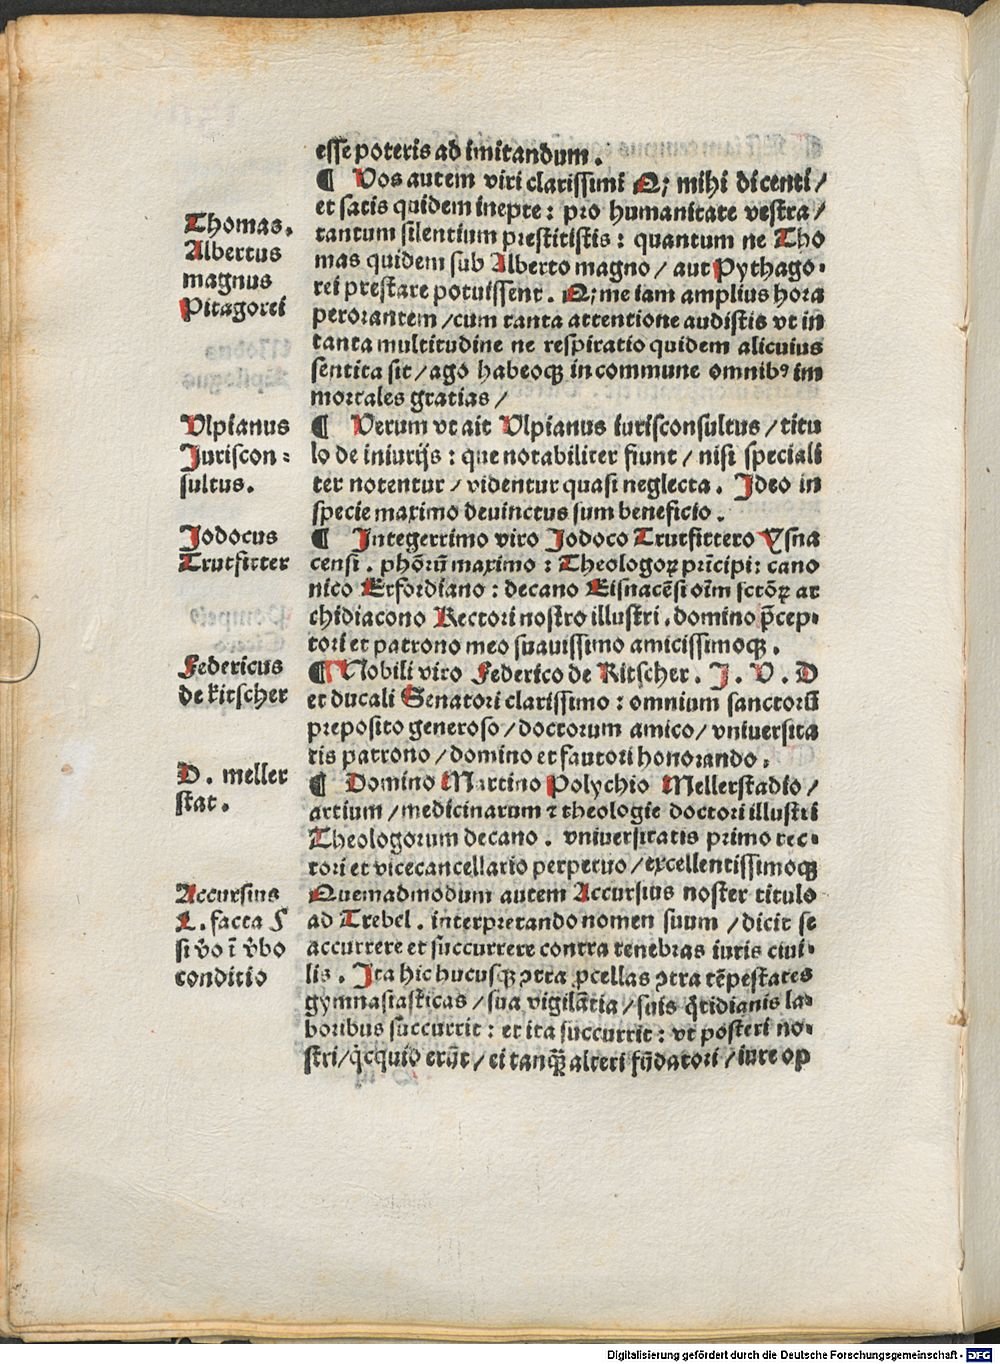 esse poteris ad imitandum.
¶ Vos autem viri clarissimi Q; mihi dicenti/
et satis quidem inepte: pro humanitate vestra/
tantum silentium prestitistis: quantum ne Tho
mas quidem sub Alberto magno/ aut Pythago⸗
rei prestare potuissent. Q; me iam amplius hora
perorantem/cum tanta attentione audistis vt in
tanta multitudine ne respiratio quidem alicuius
sentita sit/ago habeoqꝫ in commune omnibꝰ im
mortales gratias/
¶ Verum vt ait Vlpianus iurisconsultus/titu
lo de iniurijs: que notabiliter fiunt/nisi speciali
ter notentur/videntur quasi neglecta. Ideo in
specie maximo deuinctus sum beneficio.
¶ Integerrimo viro Jodoco Trutfittero Ysna
censi. phōrū maximo: Theologoꝝ prīcipi: cano
nico Erfordiano: decano Eisnacēsi oīm sctōꝝ ar
chidiacono Rectori nostro illustri. domino p̄cep⸗
tori et patrono meo suauissimo amicissimoqꝫ.
¶ Nobili viro Federico de Kitscher. J. V. D
et ducali Senatori clarissimo: omnium sanctorū
preposito generoso/doctorum amico/vniuersita
tis patrono/domino et fautori honorando.
¶ Domino Martino Polychio Mellerstadio/
artium/medicinarum ⁊ theologie doctori illustri
Theologorum decano. vniuersitatis primo rec⸗
tori et vicecancellario perpetuo/excellentissimoqꝫ
Quemadmodum autem Accursius noster titulo
ad Trebel. interpretando nomen suum/dicit se
accurrere et succurrere contra tenebras iuris ciui⸗
lis. Ita hic hucusqꝫ ꝯtra ꝓcellas ꝯtra tēpestates
gymnastasticas/sua vigilātia/suis q̄tidianis la⸗
boribus succurrit: et ita succurrit: vt posteri no⸗
stri/q̇cquid erūt/ei tanqꝫ alteri fūdatori/iure op
Thomas.
Albertus
magnus
Pitagorei
Vlpianus
Juriscon⸗
sultus.
Jodocus
Trutfitter
Federicus
de kitscher
D. meller
stat.
Accursius
L. facta §
si v̄o ī v̄bo
conditio
Digitalisierung gefördert durch die Deutsche Forschungsgemeinschaft - DFG